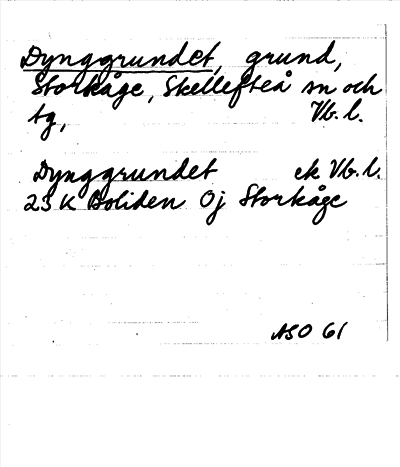 Dynggrundet, grund,
Storkåge, Skellefteå sn och
tg, Vb. l.
Dynggrundet ek Vb. l.
23 K Boliden 0j Storkåge
ASO 61